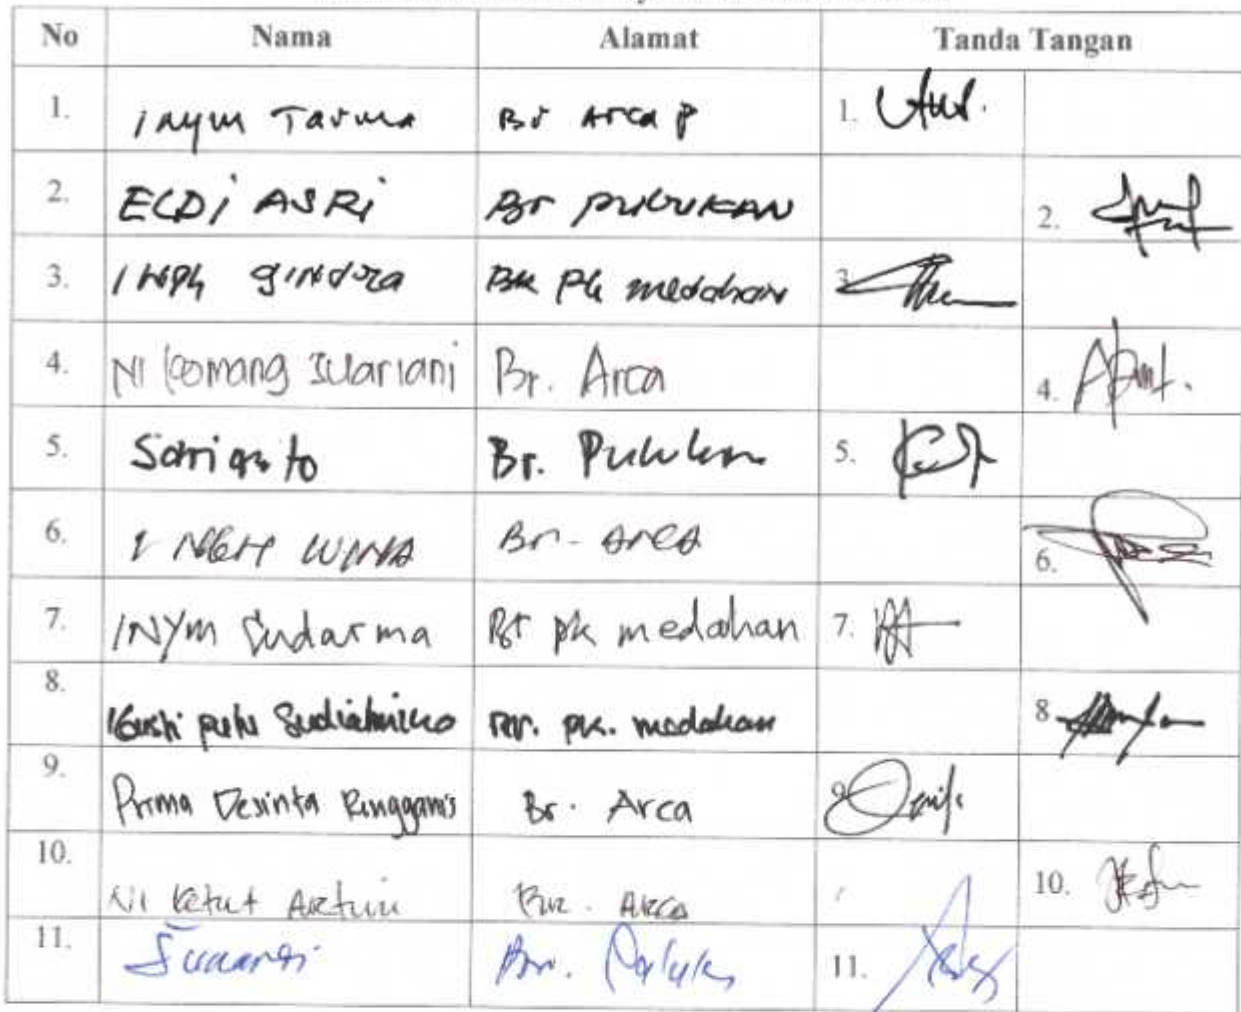 No Nama Alamat Tanda Tangan
1. I Nym Tarma Br Arca P 1.
2. ELDi ASRi Br pulukan 2.
3. I Ngh gindra Bk Pk medahan 3.
4. Ni Komang Sulariani Br. Arca 4.
5. Sarianto Br. Pulukan 5.
6. I NGH WINA Br. Arca 6.
7. I Nym Sudarma Br pk medahan 7.
8. I Gusti putu Br. pk. medahan 8.
9. Prima Desinta Ringganis Br. Arca 9.
10. Ni Ketut Br. Arca 10.
11. Br. 11.